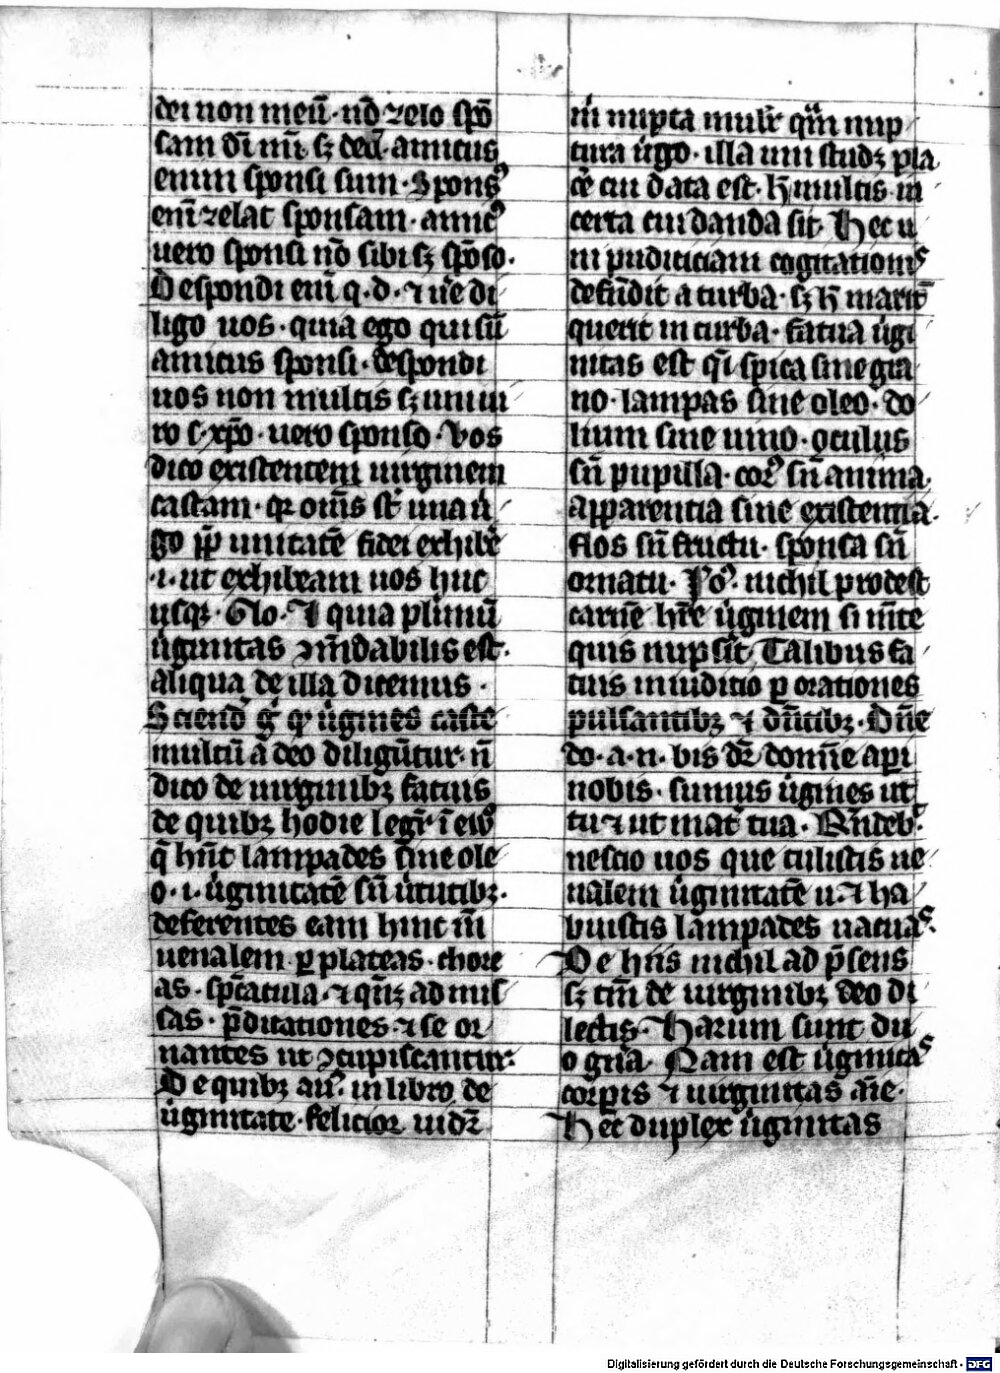 dei non meū · nō zelo spō
sam dī mī sꝫ deī · amicus
enim sponsi sum · Spons⁹
eni zelat sponsam · amic⁹
uero sponsi nō sibi sꝫ spōso ·
Despondi eni q · d · ⁊ uē di
ligo uos · quia ego qui sū
amicus sponsi · despondi
uos non multis sꝫ uni ui
ro s · xp̄o · uero sponso · Vos
dico existentem uirginem
castam · qꝛ om̄s st̄ una ů
go ꝓp̄ unitatē fidei exhibē
· i · ut exhibeam uos huc
usqꝫ · Glo · ⁊ quia plimū
ůginitas ꝯm̄dabilis est ·
aliqua de illa dicemus ·
Sciend̄ gͦ ꝙ ůgines caste
multū a deo diligūtur · n̄
dico de uirginibꝫ fatuis
de quibꝫ hodie legir̄ ī ew̄
q̄ hn̄t lampades sine ole
o · i · ůginitatē sn̄ ůtutibꝫ ·
deferentes eam hinc in̄
uenalem · ꝑ plateas · chore
as · spc̄acula · ⁊ qn̄qꝫ ad mis
sas · p̄dicationes · ⁊ se or
nantes ut ꝯcupiscantur ·
De quibꝫ au⁹ · in libro de
ůginitate · felicior uidꝛ̄
m̄ nupta mulr̄ qͣm nup
tura ůgo · illa uni studꝫ pla
cē cui data est · h̄ multis in
certa cui danda sit · Hec u
ni pudiciciam cogitationis
defn̄dit a turba · sꝫ h̄ maritū
querit in turba · fatua ůgi
nitas est qͣi spica sine gra
no · lampas sine oleo · do
lium sine uino · oculus
sn̄ pupilla · corꝰ sn̄ anima ·
apparentia sine existentia ·
flos sn̄ fructu · sponsa sn̄
ornatu · nichil prodest
carne hr̄e ůginem si mēte
quis nupsit · Talibus fa
tuis in iuditio ꝑ orationes
pulsantibꝫ ⁊ dn̄tibꝫ · Dn̄e
do · a · n · bis dr̄ domine aperi
nobis · sumus ůgines ut
tu ⁊ ut mat̄ tua · Rn̄deb̄ :
nescio uos que tulistis ue
nalem ůginitatē u · ⁊ ha
buistis lampades uacuas ·
De hiis nichil ad p̄sens
sꝫ tm̄ de uirginibꝫ deo di
lectis · Harum sunt du
o gn̄a · Nam est ůginitas
corpis ⁊ uirginitas aīe ·
Hec duplex ůginitas
Digitalisierung gefördert durch die Deutsche Forschungsgemeinschaft - DFG